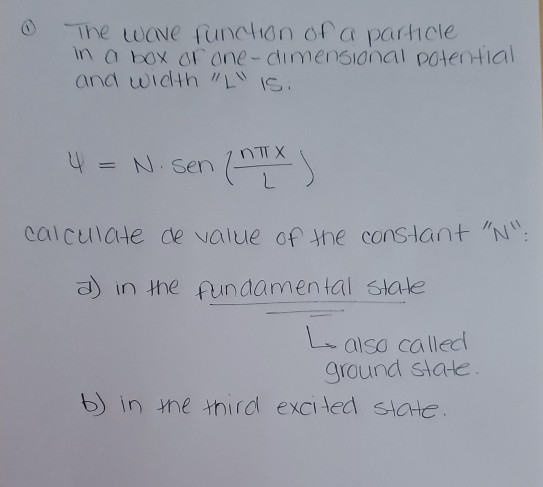 ① The wave function of a particle
in a box of one-dimensional potential
and width "L" is.
Ψ = N. sen (nπx/L)
calculate de value of the constant "N":
a) in the fundamental state
↳ also called
ground state.
b) in the third excited state.